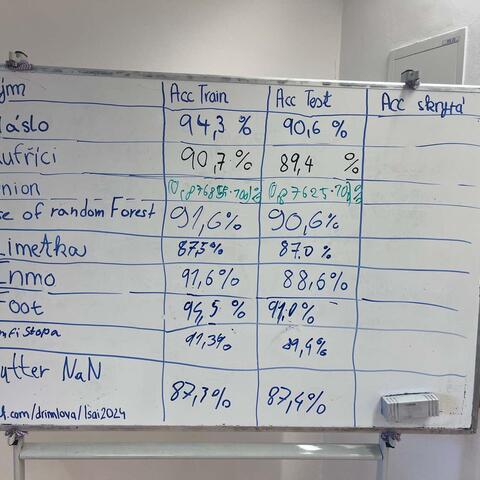 ým Acc Train Acc Test Acc skrytá
Máslo 94,3 % 90,6 %
uříci 90,7 % 89,4 %
nion (0,876855·100)% (0,87625·100)%
se of random Forest 91,6% 90,6%
Limetka 87,5% 87.0%
Enmo 91,6% 88,6%
Foot 94,5 % 91.0%
nfistopa 91,3% 89,4%
utter NaN 87,3% 87,4%
.com/drimlova/lsai2024